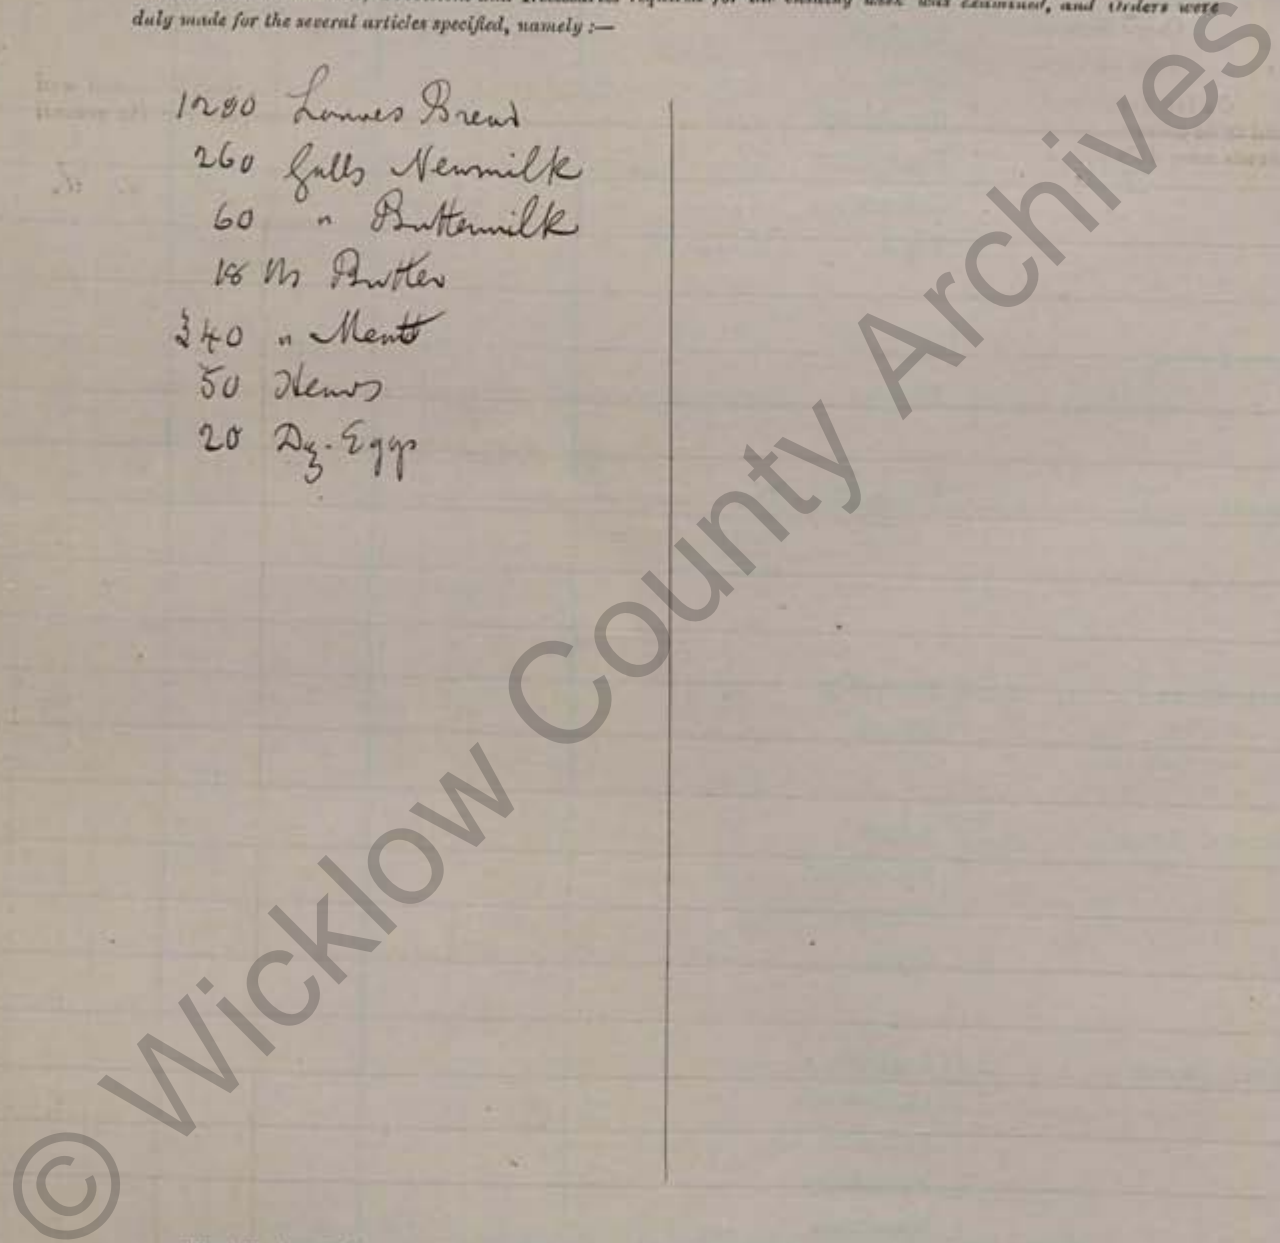 required for the ensuing week was examined, and Orders were
duly made for the several articles specified, namely :—
1280 Loaves Bread
260 Galls Newmilk
60 " Buttermilk
18 lbs Butter
340 " Meat
50 Heads
20 Dz. Eggs
© Wicklow County Archives